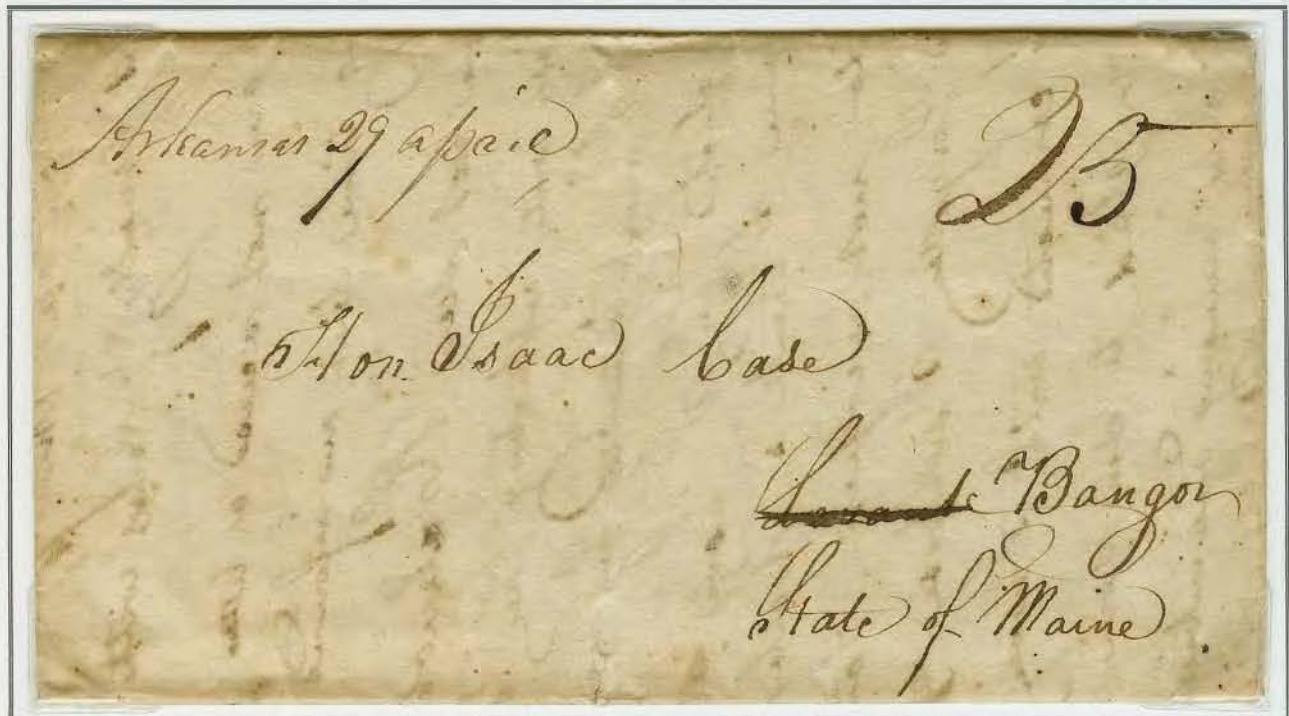 Arkansas 29 april
25
Hon. Isaac Case
Bangor
State of Maine